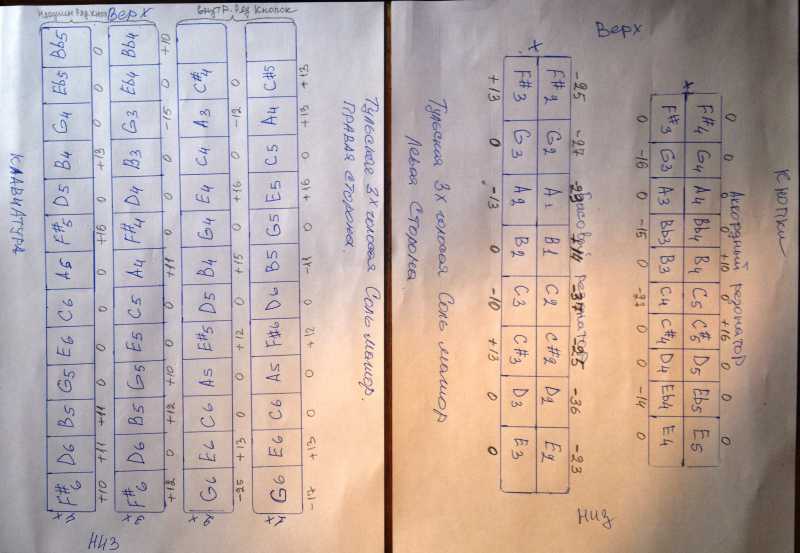 Верх
КЛАВИАТУРА
Bb5 Eb5 G4 B4 D5 F#5 A5 C6 E6 G5 B5 D6 F#6
0 0 0 +13 0 +16 0 0 0 0 +11 +11 +10
Bb4 Eb4 G3 B3 D4 F#4 A4 C5 E5 G5 B5 D6 F#6
+10 0 -15 0 0 0 +11 0 0 +10 +12 0 +12
Внутр. ряд Кнопок
C#4 A3 C4 E4 G4 B4 D5 F#5 A5 C6 E6 G6
0 -12 0 +16 0 +15 0 +12 0 0 +13 -25
C#5 A4 C5 E5 G5 B5 D6 F#6 A5 C6 E6 G6
+13 +13 0 +16 0 -11 0 +12 0 0 +13 -17
НИЗ
Тульская 3х голосая Соль мажор.
Правая сторона.
Верх
Кнопки
Аккордный резонатор
0 0 0 0 +10 0 +16 0 0 0
F#4 G4 A4 Bb4 B4 C5 C#5 D5 Eb5 E5
F#3 G3 A3 Bb3 B3 C4 C#4 D4 Eb4 E4
0 -16 0 -15 0 0 0 -14 0
Басовой резонатор
-25 -27 -25 -36 -23
F#2 G2 A1 B1 C2 C#2 D2 E2
F#3 G3 A2 B2 C3 C#3 D3 E3
+13 0 -13 0 -10 +13 0 0
Низ
Тульская 3х голосая Соль мажор
Левая Сторона.